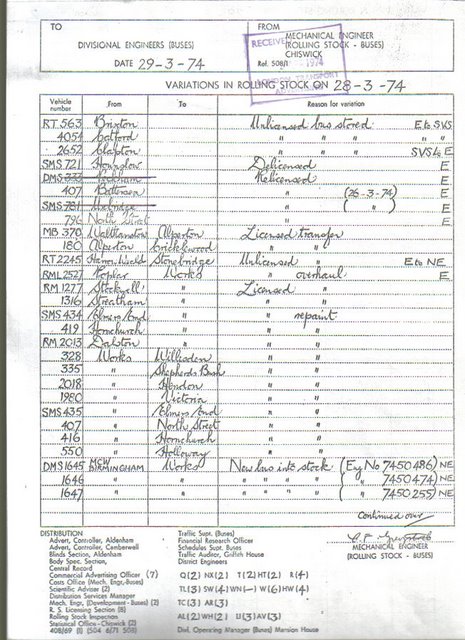 TO
FROM
DIVISIONAL ENGINEERS (BUSES)
MECHANICAL ENGINEER
(ROLLING STOCK - BUSES)
CHISWICK
DATE 29-3-74
Ref. 508/1
RECEIVED
1974
LONDON TRANSPORT
VARIATIONS IN ROLLING STOCK ON 28-3-74
Vehicle number From To Reason for variation
RT 563 Brixton Unlicensed bus stored E to SVS
4054 Catford " " " "
2652 Clapton " " " SVS to E
SMS 721 Hounslow Delicensed E
DMS 333 Peckham Relicensed E
407 Battersea " (26-3-74) E
SMS 781 Uxbridge " ( " ) E
796 North Street " E
MB 370 Walthamstow Alperton Licensed transfer
180 Alperton Cricklewood " "
RT 2245 Harrow Weald Stonebridge Unlicensed " E to NE
RML 2527 Poplar Works " overhaul E
RM 1277 Stockwell " Licensed "
1316 Streatham " " "
SMS 434 Elmers End " " repaint
419 Hornchurch " " "
RM 2013 Dalston " " "
328 Works Willesden " "
335 " Shepherds Bush " "
2018 " Hendon " "
1980 " Victoria " "
SMS 435 " Elmers End " "
407 " North Street " "
416 " Hornchurch " "
550 " Holloway " "
DMS 1645 MCW BIRMINGHAM Works New bus into stock (Eng No 7450486) NE
1646 " " " " " " ( " 7450474) NE
1647 " " " " " " ( " 7450255) NE
Continued over
DISTRIBUTION
Advert, Controller, Aldenham
Advert, Controller, Camberwell
Blinds Section, Aldenham
Body Spec. Section,
Central Record
Commercial Advertising Officer (7)
Costs Office (Mech. Engr-Buses)
Scientific Adviser (2)
Distribution Services Manager
Mech. Engr, (Development - Buses) (2)
R. S. Licensing Section (8)
Rolling Stock Inspection
Statistical Office - Chiswick (2)
408/69 (1) (504 6/71 508)
Traffic Supt. (Buses)
Financial Research Officer
Schedules Supt. Buses
Traffic Auditor, Griffith House
District Engineers
Q(2) NX(2) T(2) HT(2) R(4)
TL(3) SW(4) WN(-) W(6) HW(3)
TC(3) AR(3)
AL(2) WH(2) U(3) AV(3)
Divl. Operating Manager (Buses) Mansion House
MECHANICAL ENGINEER
(ROLLING STOCK - BUSES)